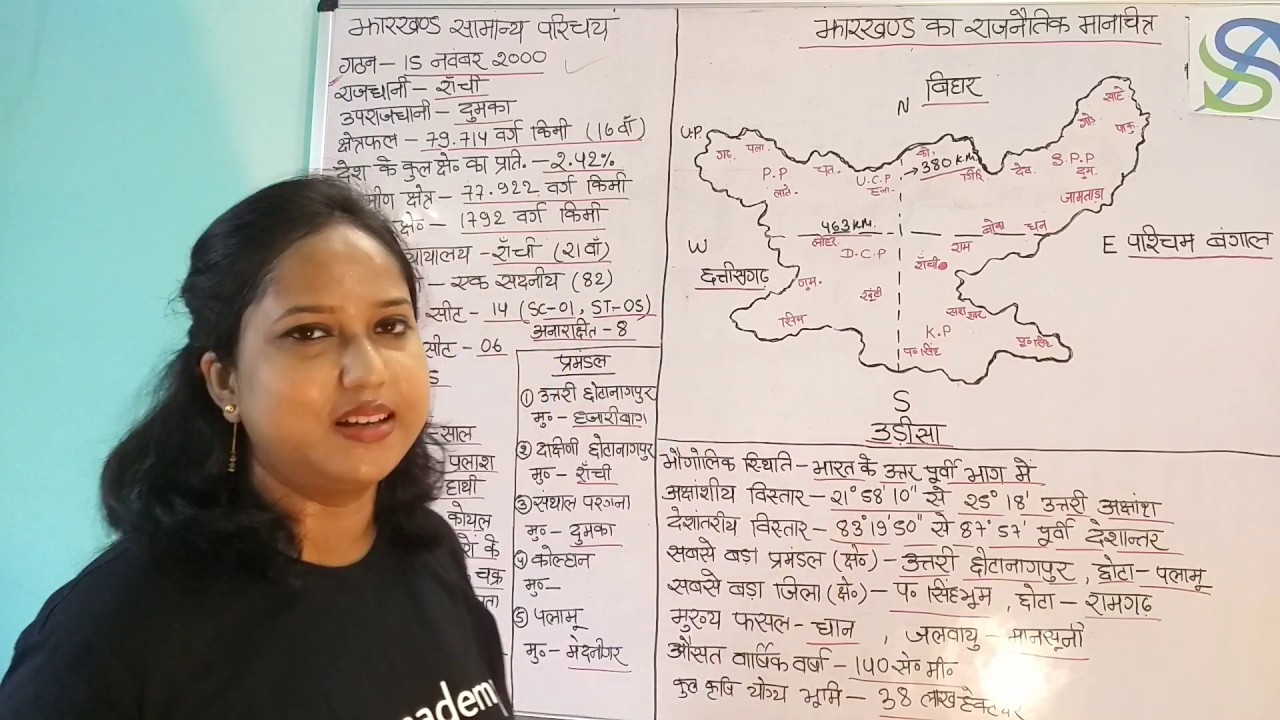 झारखण्ड सामान्य परिचय
गठन – 15 नवंबर 2000
राजधानी – राँची
उपराजधानी – दुमका
क्षेत्रफल – 79.714 वर्ग किमी (16वाँ)
देश के कुल क्षे० का प्रति. – 2.42%
क्षेत्र – 77.922 वर्ग किमी
क्षे० – 1792 वर्ग किमी
– राँची (21वाँ)
– एक सदनीय (82)
सीट – 14 (SC-01, ST-05)
अनारक्षित – 8
सीट – 06
साल
पलाश
हाथी
कोयल
के
चक्र
प्रमंडल
① उत्तरी छोटानागपुर
मु० – हजारीबाग
② दक्षिणी छोटानागपुर
मु० – राँची
③ संथाल परगना
मु० – दुमका
④ कोल्हान
मु० –
⑤ पलामू
मु० – मेदनीनगर
झारखण्ड का राजनैतिक मानचित्र
N
बिहार
U.P.
साहे
गो०
पाकु
गढ़.
पला.
चत.
को.
→ 380 K.M.
गिरि
देव.
S.P.P
दुम.
P.P
लाते.
U.C.P
हजा.
जामताड़ा
463 KM.
लोहर
D.C.P
बोका
धन
राम
राँची
W
छत्तीसगढ़
E पश्चिम बंगाल
गुम.
खूंटी
सिम
सरा
खर
K.P
प० सिंह
पू० सिंह
S
उड़ीसा
भौगोलिक स्थिति – भारत के उत्तर पूर्वी भाग में
अक्षांशीय विस्तार – 21° 58' 10" से 25° 18' उत्तरी अक्षांश
देशांतरीय विस्तार – 83° 19' 50" से 87° 57' पूर्वी देशान्तर
सबसे बड़ा प्रमंडल (क्षे०) – उत्तरी छोटानागपुर, छोटा – पलामू
सबसे बड़ा जिला (क्षे०) – प० सिंहभूम, छोटा – रामगढ़
मुख्य फसल – धान , जलवायु – मानसूनी
औसत वार्षिक वर्षा – 140 से० मी०
कुल कृषि योग्य भूमि – 38 लाख हेक्टेयर